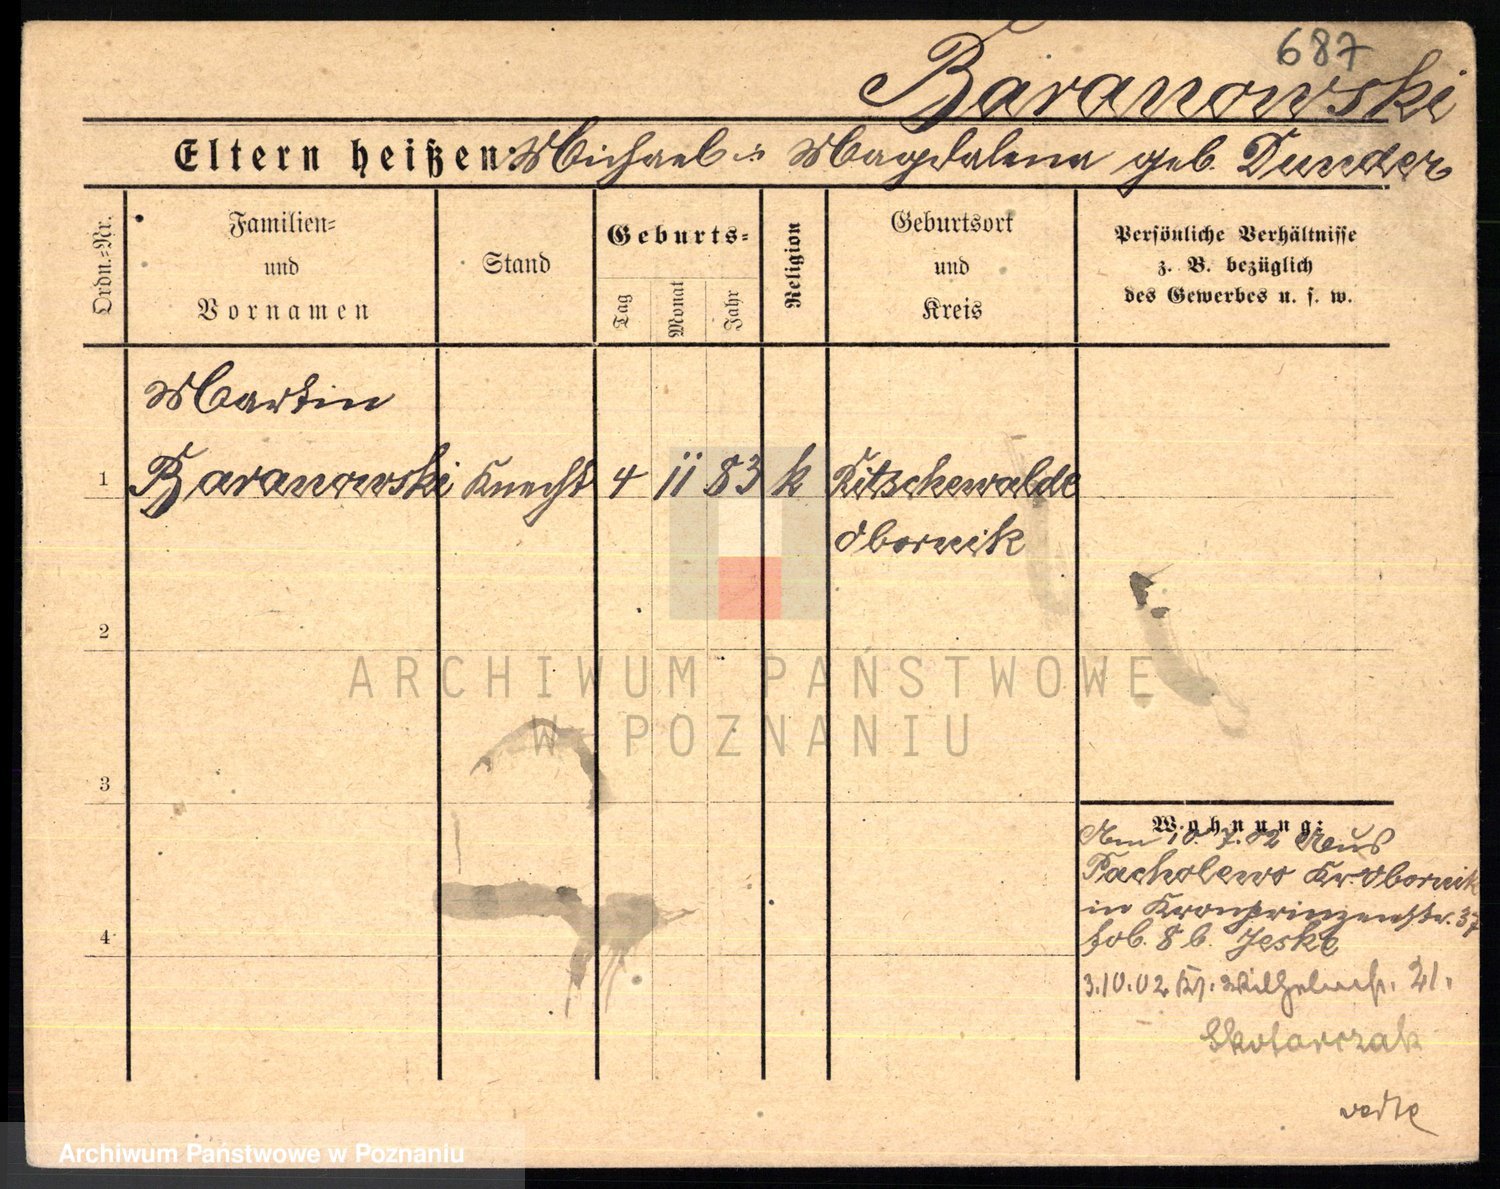 687
Baranowski
Eltern heißen: Michael u. Magdalena geb. Dunder
Ordn.-Nr.
Familien-
und
Vornamen
Stand
Geburts-
Tag
Monat
Jahr
Religion
Geburtsort
und
Kreis
Persönliche Verhältnisse
z. B. bezüglich
des Gewerbes u. s. w.
Martin
1 Baranowski Knecht 4 11 83 k Kitschewalde
Obornik
2
ARCHIWUM PAŃSTWOWE
W POZNANIU
3
Wohnung:
Am 10.7.02 Aus
Pacholewo Kr. Obornik
in Kronprinzenstr. 37
b. Jeske
4
3.10.02 Wilhelmstr. 21.
Skotarczak
Archiwum Państwowe w Poznaniu